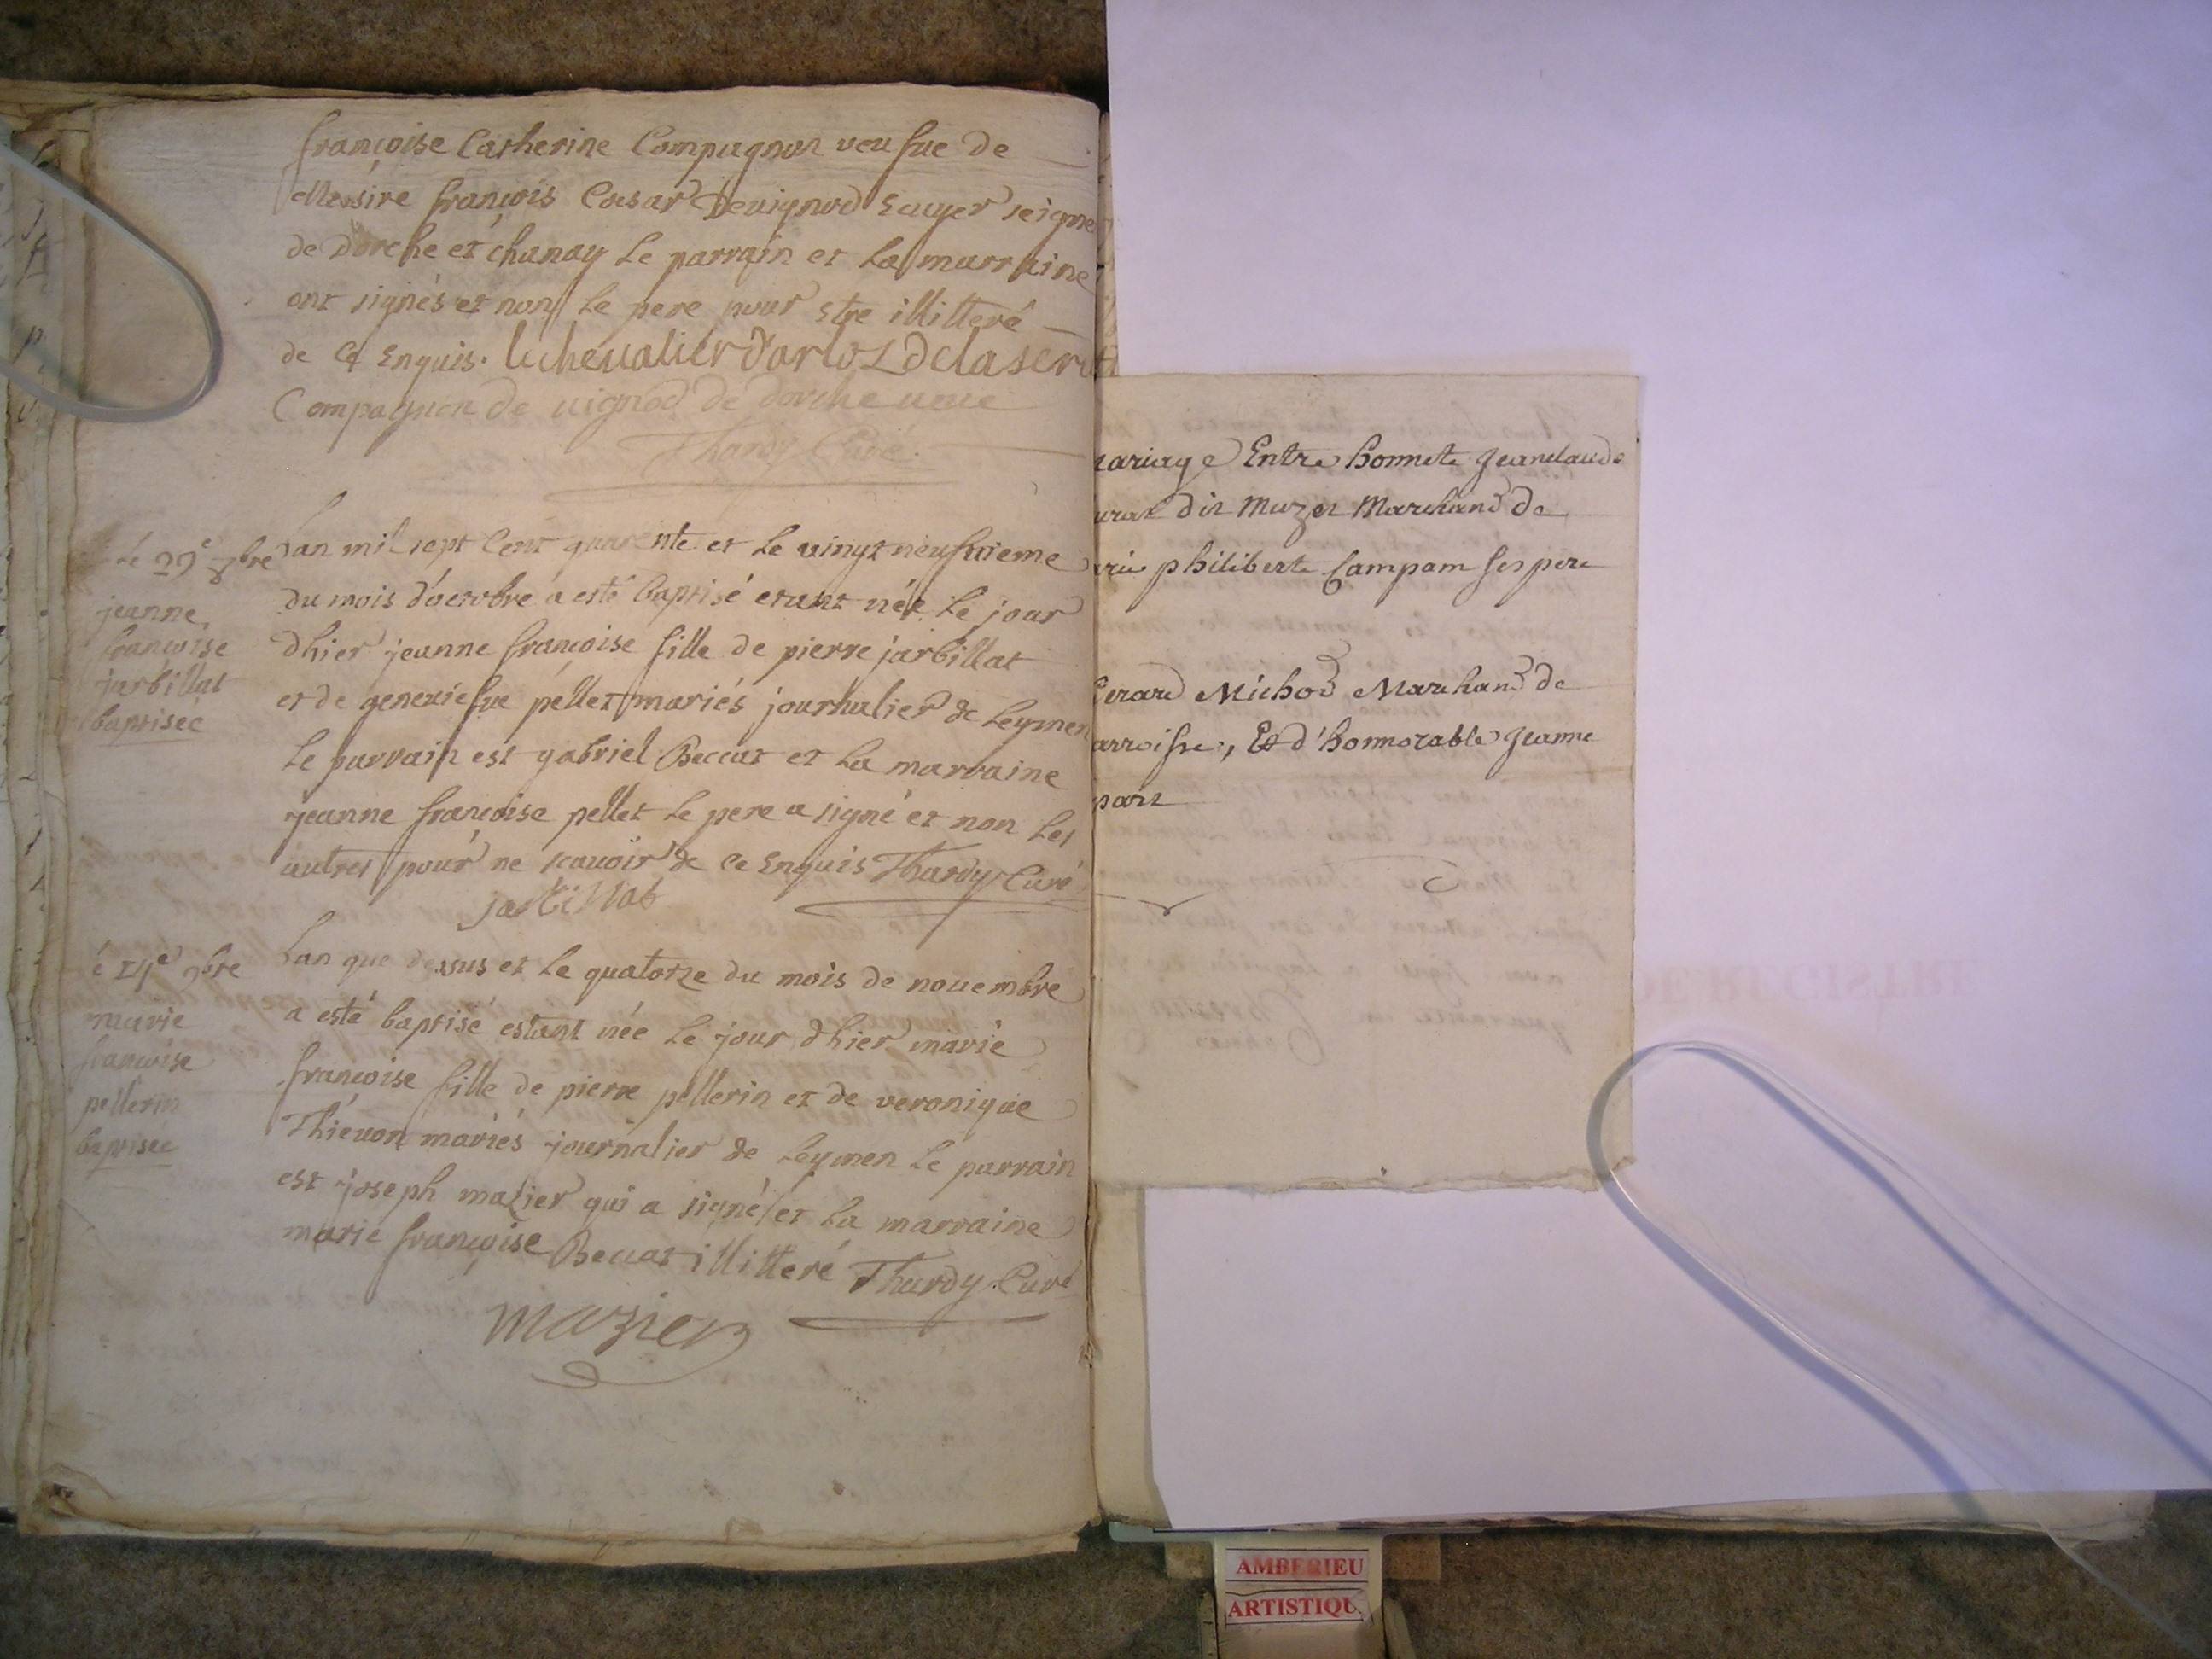 françoise Catherine Compagnon veufue de
Messire françois Coesar Devignod Ecuyer seigne
de Dorche et chanay Le parrain et La marraine
ont signés et non Le pere pour Etre illitteré
de ce Enquis. lechevalier d'arloz delaserv
Compagnon de vignod de dorche veuve
Thardy Curé
Le 29e 8bre
jeanne
françoise
jarbillat
baptisée
Lan mil sept Cent quarente et Le vingt neufvieme
du mois d'octobre a esté baptisé etant née Le jour
dhier jeanne françoise fille de pierre jarbillat
et de geneviefve pellet mariés journalier de Leymen
Le parrain est gabriel Beccat et La marraine
jeanne françoise pellet Le pere a signé et non Les
autres pour ne scavoir de ce Enquis Thardy Curé
jarbillat
é 14e 9bre
marie
françoise
pellerin
baptisée
Lan que dessus et Le quatorze du mois de novembre
a esté baptisé estant née Le jour dhier marie
françoise fille de pierre pellerin et de veronique
Thievon mariés journalier de Leymen Le parrain
est joseph mazier qui a signé et La marraine
marie françoise Beccat illitteré Thardy Curé
mazier
ariage Entre honnete Jeanclaude
dit Muzer Marchand de
philiberte Campam ses pere
erard Michod Marchand de
arroisse, Et d'honnorable Jeanne
part
AMBERIEU
ARTISTIQU